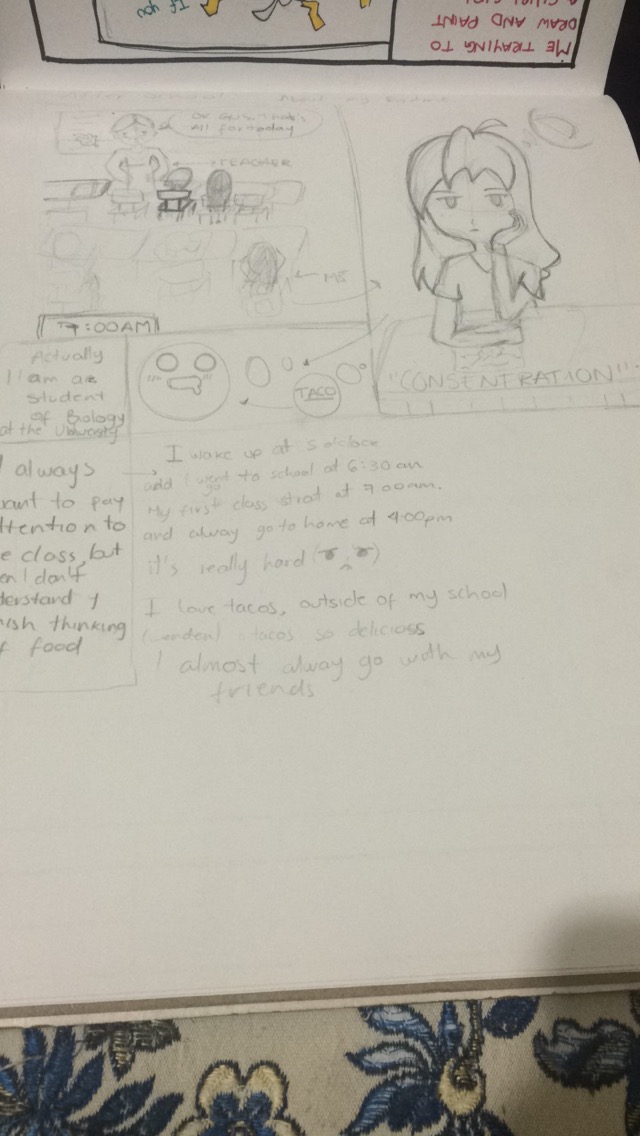 If you
ME TRAYING TO
DRAW AND PAINT
Ok Guys. That's
All for today
TEACHER
ME
7:00AM
"CONSENTRATION"
TACO
Actually
I am are
student
of Biology
at the University
always
want to pay
attention to
class, but
I don't
understand y
thinking
food
I wake up at 5 o'clock
add I went go to school at 6:30 am
My first class strat at 7:00am.
and alway go to home at 4:00pm
it's really hard
I love tacos, outside of my school
tacos so delicioss
I almost alway go woth my
friends